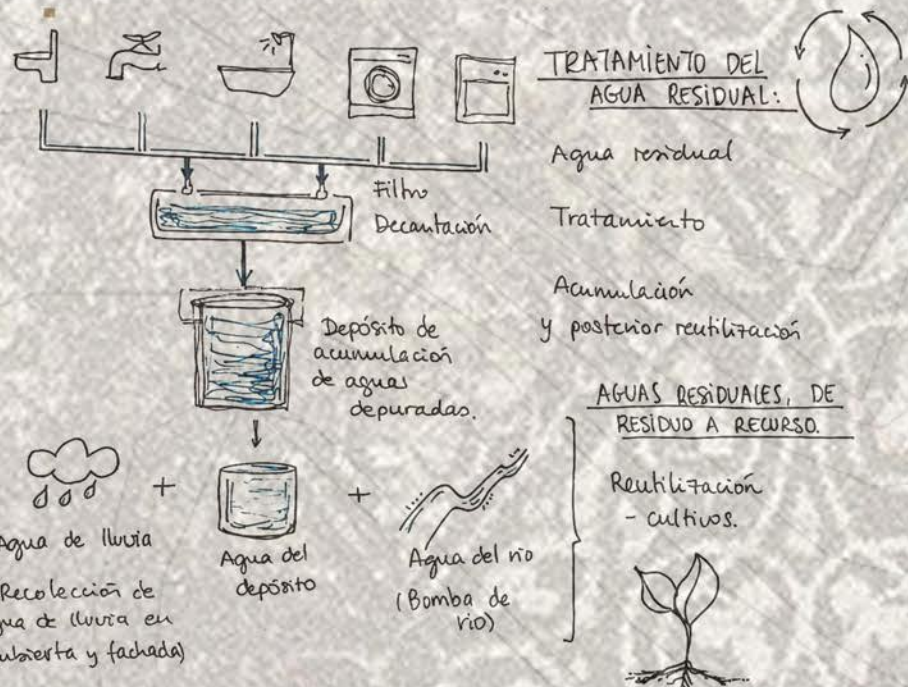 TRATAMIENTO DEL
AGUA RESIDUAL:
Agua residual
Tratamiento
Acumulación
y posterior reutilización
Filtro
Decantación
Depósito de
acumulación
de aguas
depuradas.
AGUAS RESIDUALES, DE
RESIDUO A RECURSO.
Reutilización
- cultivos.
+
+
Agua de lluvia
Recolección de
agua de lluvia en
cubierta y fachada)
Agua del
depósito
Agua del río
(Bomba de
río)